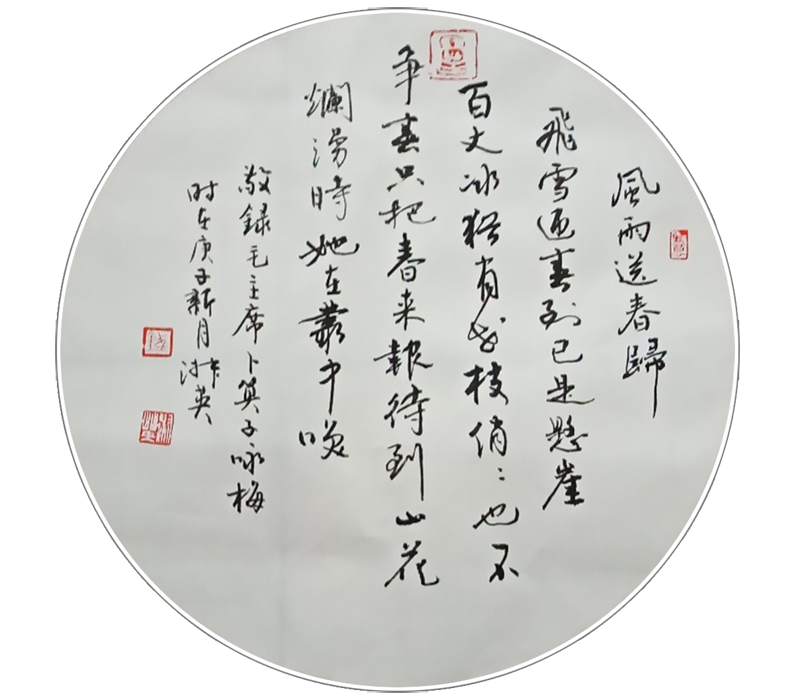 風雨送春歸
飛雪迎春到已是懸崖
百丈冰猶有花枝俏〻也不
争春只把春来報待到山花
爛漫時她在叢中咲
敬録毛主席卜算子咏梅
时在庚子新月英